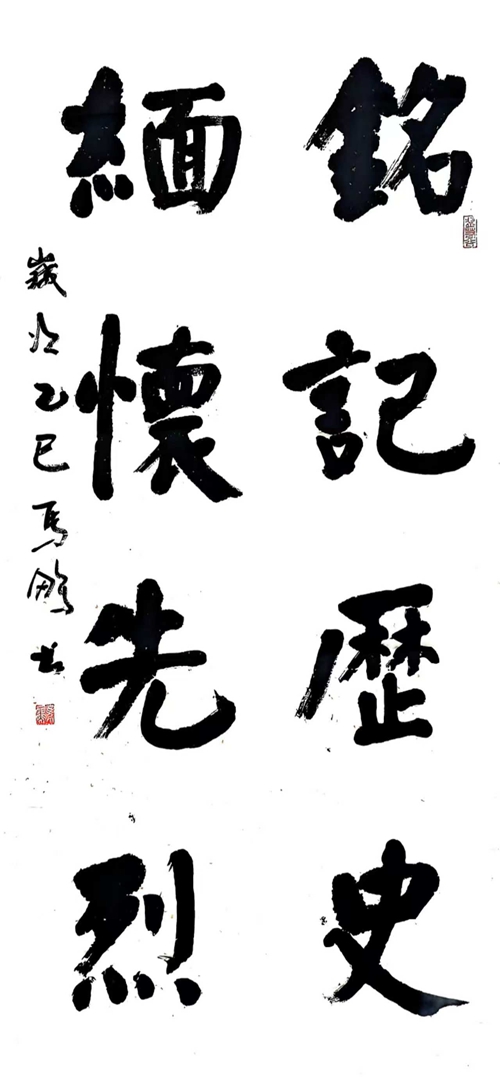 銘記歷史
緬懷先烈
歲次乙巳馬鵬書